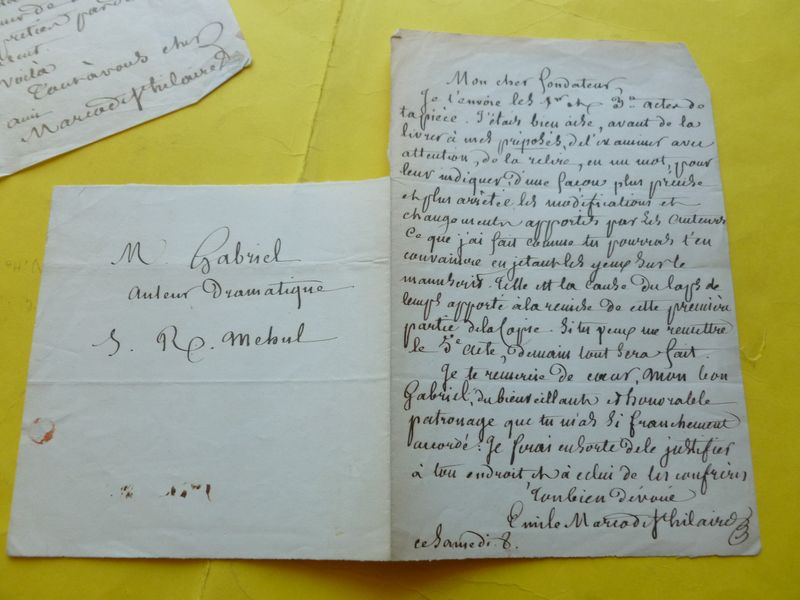 tout à vous cher
voilà
ami
Marco de St hilaire
M Gabriel
auteur Dramatique
5. R. Mehul
Mon cher fondateur,
Je t'envoie les 1er et 3e actes de
ta pièce. J'étais bien aise, avant de la
livrer à mes préposés, de l'examiner avec
attention, de la relire, en un mot, pour
leur indiquer, d'une façon plus précise
et plus arrêtée les modifications et
changements apportés par les auteurs
Ce que j'ai fait comme tu pourras t'en
convaincre en jetant les yeux sur le
manuscrit. Telle est la cause du laps de
temps apporté à la remise de cette première
partie de la Copie. Si tu veux me remettre
le 5e acte, demain tout sera fait.
Je te remercie de cœur, mon bon
Gabriel, du bienveillant et honorable
patronage que tu m'as si franchement
accordé. Je ferai en sorte de le justifier
à ton endroit et à celui de tes confrères
Ton bien dévoué
Emile Marco de St hilaire
ce Samedi. 8.